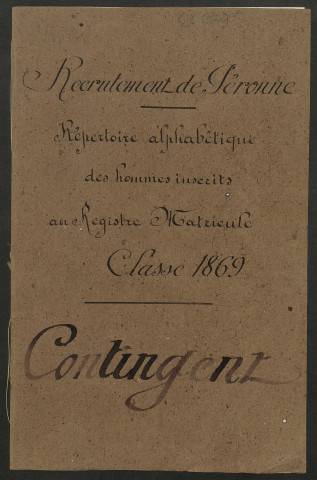 Recrutement de Péronne
Répertoire alphabétique
des hommes inscrits
au Registre Matricule
Classe 1869
Contingent